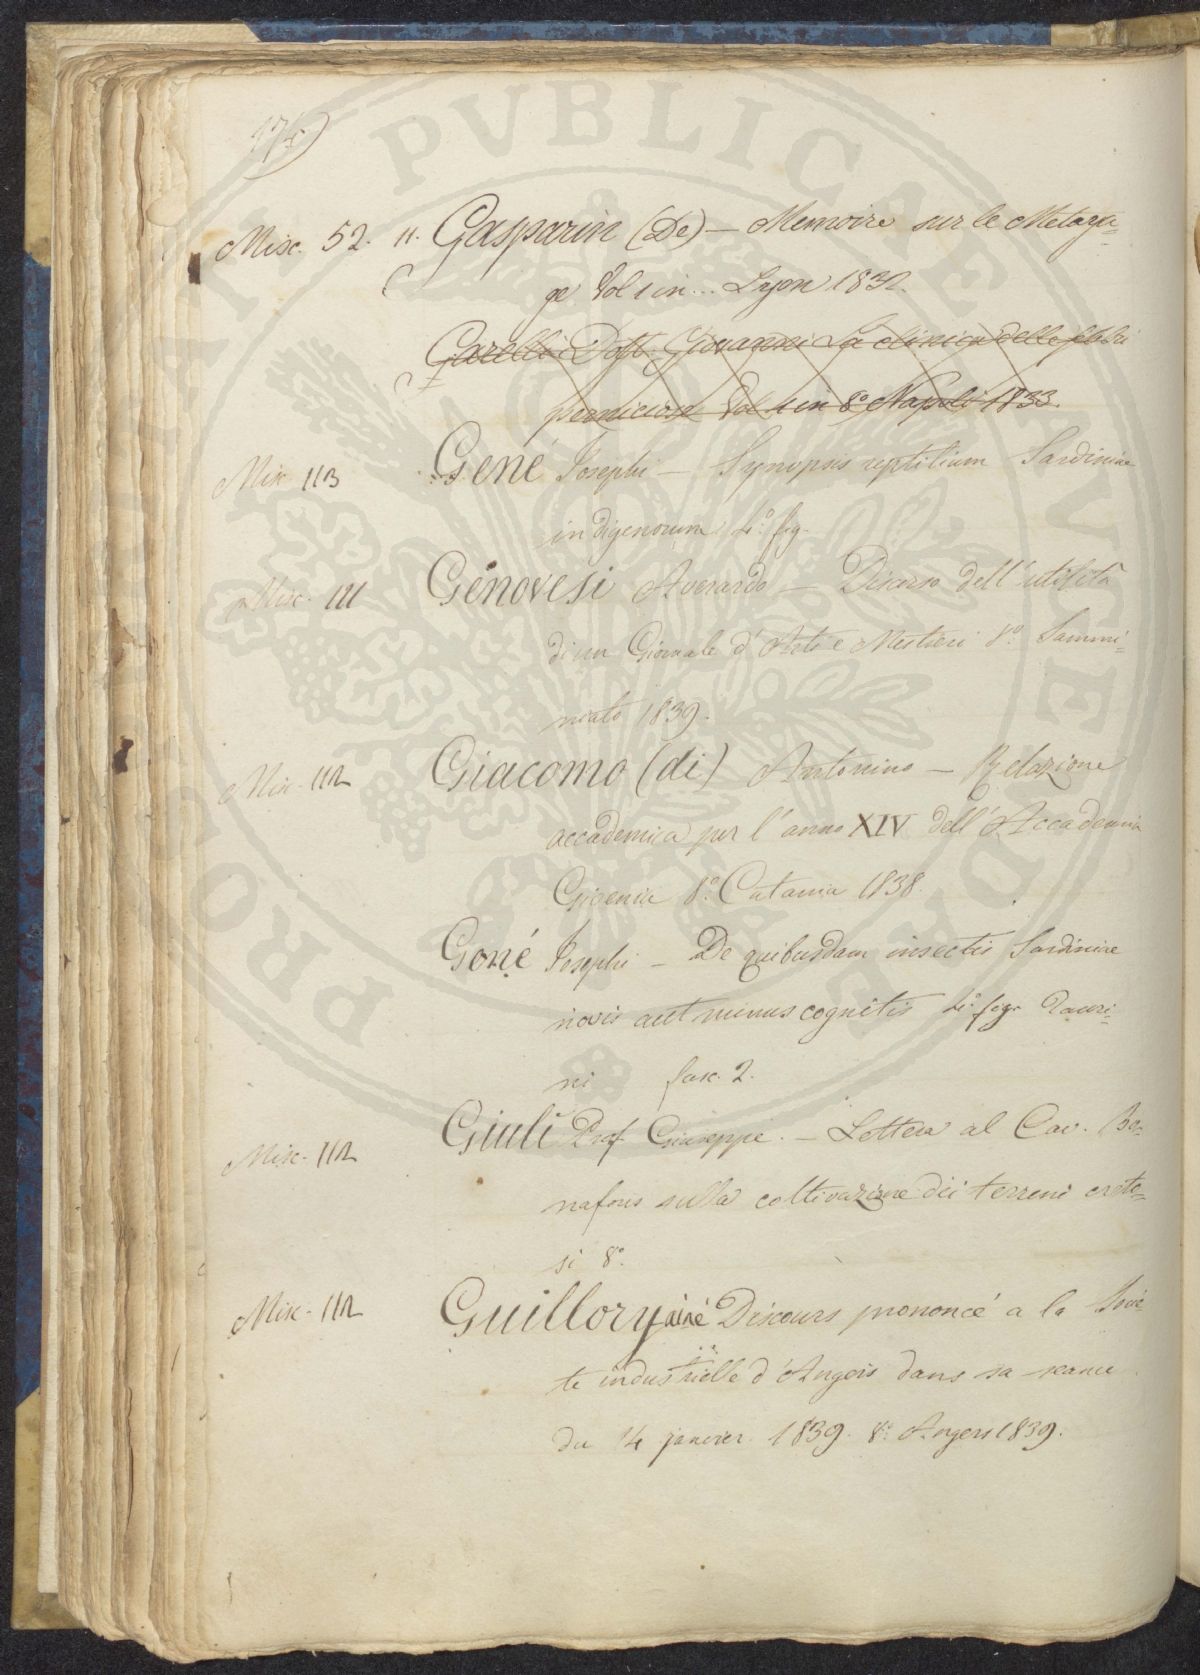 Misc. 52. 11. Gasparin (De) — Memoire sur le Metaya=
ge Vol 1 in... Lyon 1832.
Garelli Dott. Giovanni La clinica delle febbri
perniciose Vol 1 in 8° Napoli 1833.
Misc. 113 Gené Josephi — Synopsis reptilium Sardiniae
indigenorum 4.° fig.
Misc. 111 Genovesi Averardo — Discorso dell'utilità
di un Giornale d'Arti e Mestieri 8.° Sammi=
niato 1839.
Misc. 112 Giacomo (di) Antonino — Relazione
accademica per l'anno XIV dell'Accademia
Gioenia 8.° Catania 1838.
Goné Josephi — De quibusdam insectis Sardiniae
novis aut minus cognitis 4.° fig. Tauri=
ni fasc. 2.
Misc. 112 Giuli Prof. Giuseppe. — Lettera al Cav. Bo=
nafous sulla coltivazione dei terreni crete=
si 8.°
Misc. 112 Guillory ainé Discours prononcé a la Socié
te industrielle d'Angers dans sa seance
du 14 janvier. 1839. 8.° Angers 1839.
PRO BIBLIOTHECAE PVBLICAE LVCE MDR